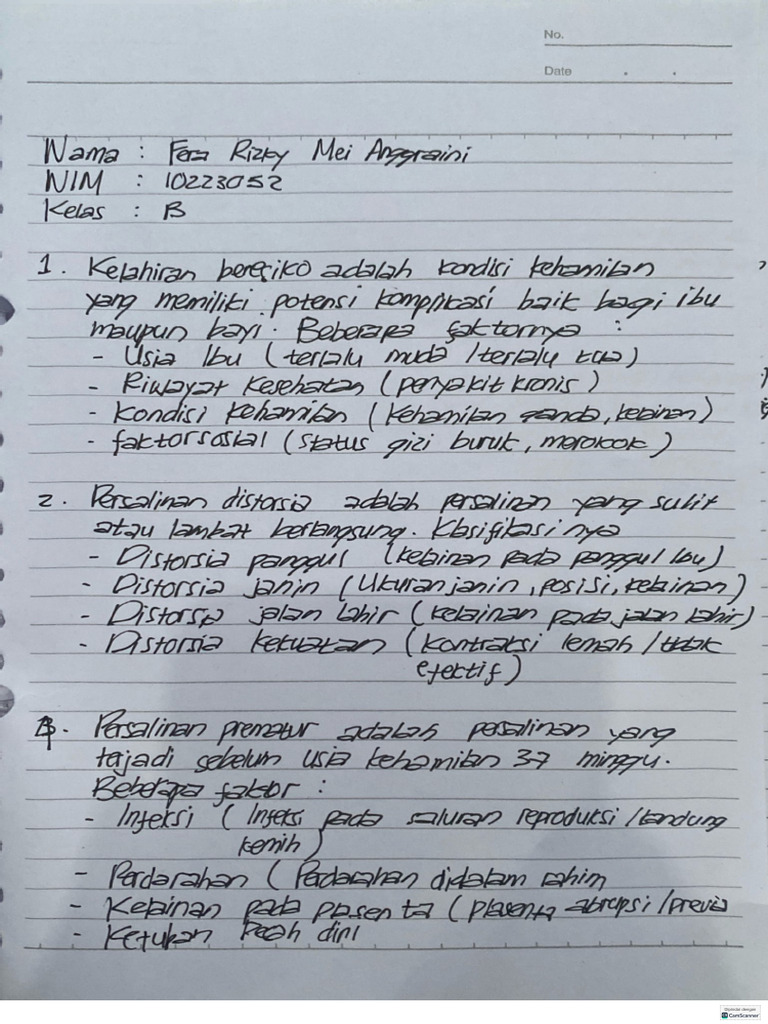 No.
Date
Nama : Fera Rizky Mei Anggraini
NIM : 10223052
Kelas : B
1. Kelahiran beresiko adalah kondisi kehamilan
yang memiliki potensi komplikasi baik bagi ibu
maupun bayi. Beberapa faktornya :
- Usia Ibu (terlalu muda /terlalu tua)
- Riwayat Kesehatan (penyakit kronis)
- Kondisi Kehamilan (Kehamilan ganda, kelainan)
- faktor sosial (status gizi buruk, merokok)
2. Persalinan distorsia adalah persalinan yang sulit
atau lambat berlangsung. Klasifikasi nya
- Distorsia panggul (kelainan pada panggul Ibu)
- Distorsia janin (Ukuran janin, posisi, kelainan)
- Distorsia jalan lahir (kelainan pada jalan lahir)
- Distorsia kekuatan (kontraksi lemah /tidak
efektif)
3. Persalinan prematur adalah persalinan yang
terjadi sebelum usia kehamilan 37 minggu.
Beberapa faktor :
- Infeksi (Infeksi pada saluran reproduksi /kandung
kemih)
- Perdarahan (Perdarahan didalam rahim
- Kelainan pada plasenta (plasenta abrupsi /previa
- Ketuban Pecah dini
Dipindai dengan
CamScanner